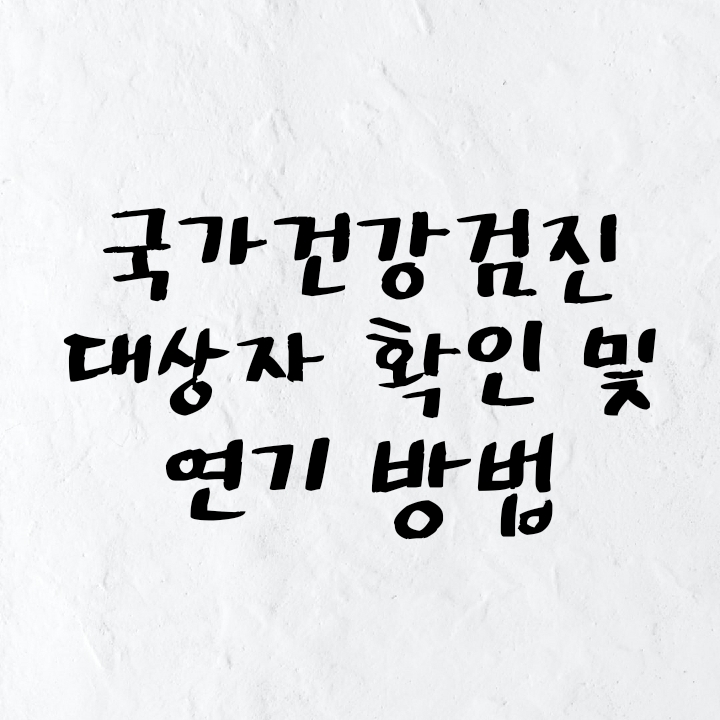 국가건강검진
대상자 확인 및
연기 방법